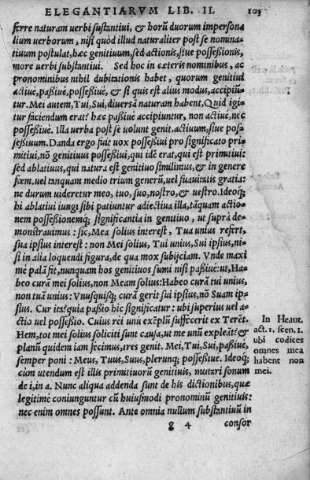 ELEGANTIARVM LIB. II. 103
ferre naturam uerbi sustantiui, & horũ duorum impersona
lium uerborum, nisi quòd illud naturaliter post se nomina-
tiuum postulat, hæc genitiuum, sed actionis, siue possessionis,
more uerbi substantiui. Sed hoc in cæteris nominibus, ac
pronominibus nihil dubitationis habet, quorum genitiui
actiuè, passiuè, possessiuè, & si quis est alius modus, accipiũ-
tur. Mei autem, Tui, Sui, diuersã naturam habent. Quid igi-
tur faciendum erat? hæc passiuè accipiuntur, non actiuè, nec
possessiuè. Illa uerba post se uolunt genit. actiuum, siue pos-
sessiuum. Danda ergo fuit uox possessiui pro significato pri-
mitiui, nõ genitiuus possessiui, qui idẽ erat, qui est primitiui:
sed ablatiuus, qui natura est genitiuo simillimus, & in genere
fœm. uel tanquam medio trium generũ, uel suauitatis gratia:
ne durum uideretur meo, tuo, suo, nostro, & uestro. Ideoq́;
hi ablatiui iungi sibi patiuntur adiectiua illa, tãquam actio-
nem possessionemq́; significantia in genitiuo, ut suprà de-
monstrauimus: sic, Mea solius interest, Tua unius refert,
Sua ipsius interest: non Mei solius, Tui unius, Sui ipsius, ni-
si in alia loquendi figura, de qua mox subijciam. Vnde maxi
mè palã fit, nunquam hos genitiuos sumi nisi passiuè: ut, Ha-
beo curã mei solius, non Meam solius: Habeo curã tui unius,
non tuã unius: Vnusquisq́; curã gerit sui ipsius, nõ Suam ip-
sius. Cur ita? quia passio hic significatur: ubi superius uel a-
ctio uel possessio. Cuius rei unũ exẽplũ suffecerit ex Terẽt.
Hem, tot mea solius soliciti sunt causa, ut me unũ expleãt? &
planũ quidem iam fecimus, tres genit. Mei, Tui, Sui, passiuè,
semper poni: Meus, Tuus, Suus, plerunq́; possessiuè. Ideoq́;
cùm utendum est illis primitiuorũ genitiuis, mutari sonum
de i, in a. Nunc aliqua addenda sunt de his dictionibus, quæ
legitimè coniunguntur cũ huiusmodi pronominũ genitiuis:
nec enim omnes possunt. Ante omnia nullum substantiuũ in
g 4 consor
In Heaut.
act. 1. scen. 1.
ubi codices
omnes mea
habent non
mei.